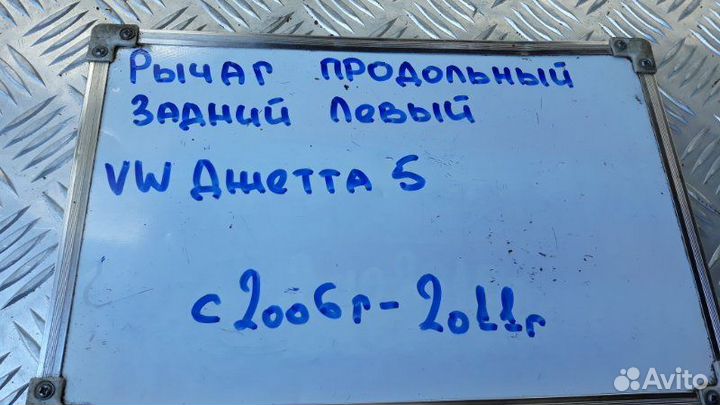 Рычаг продольный
задний левый
VW Джетта 5
с 2006г - 2011г
Avito